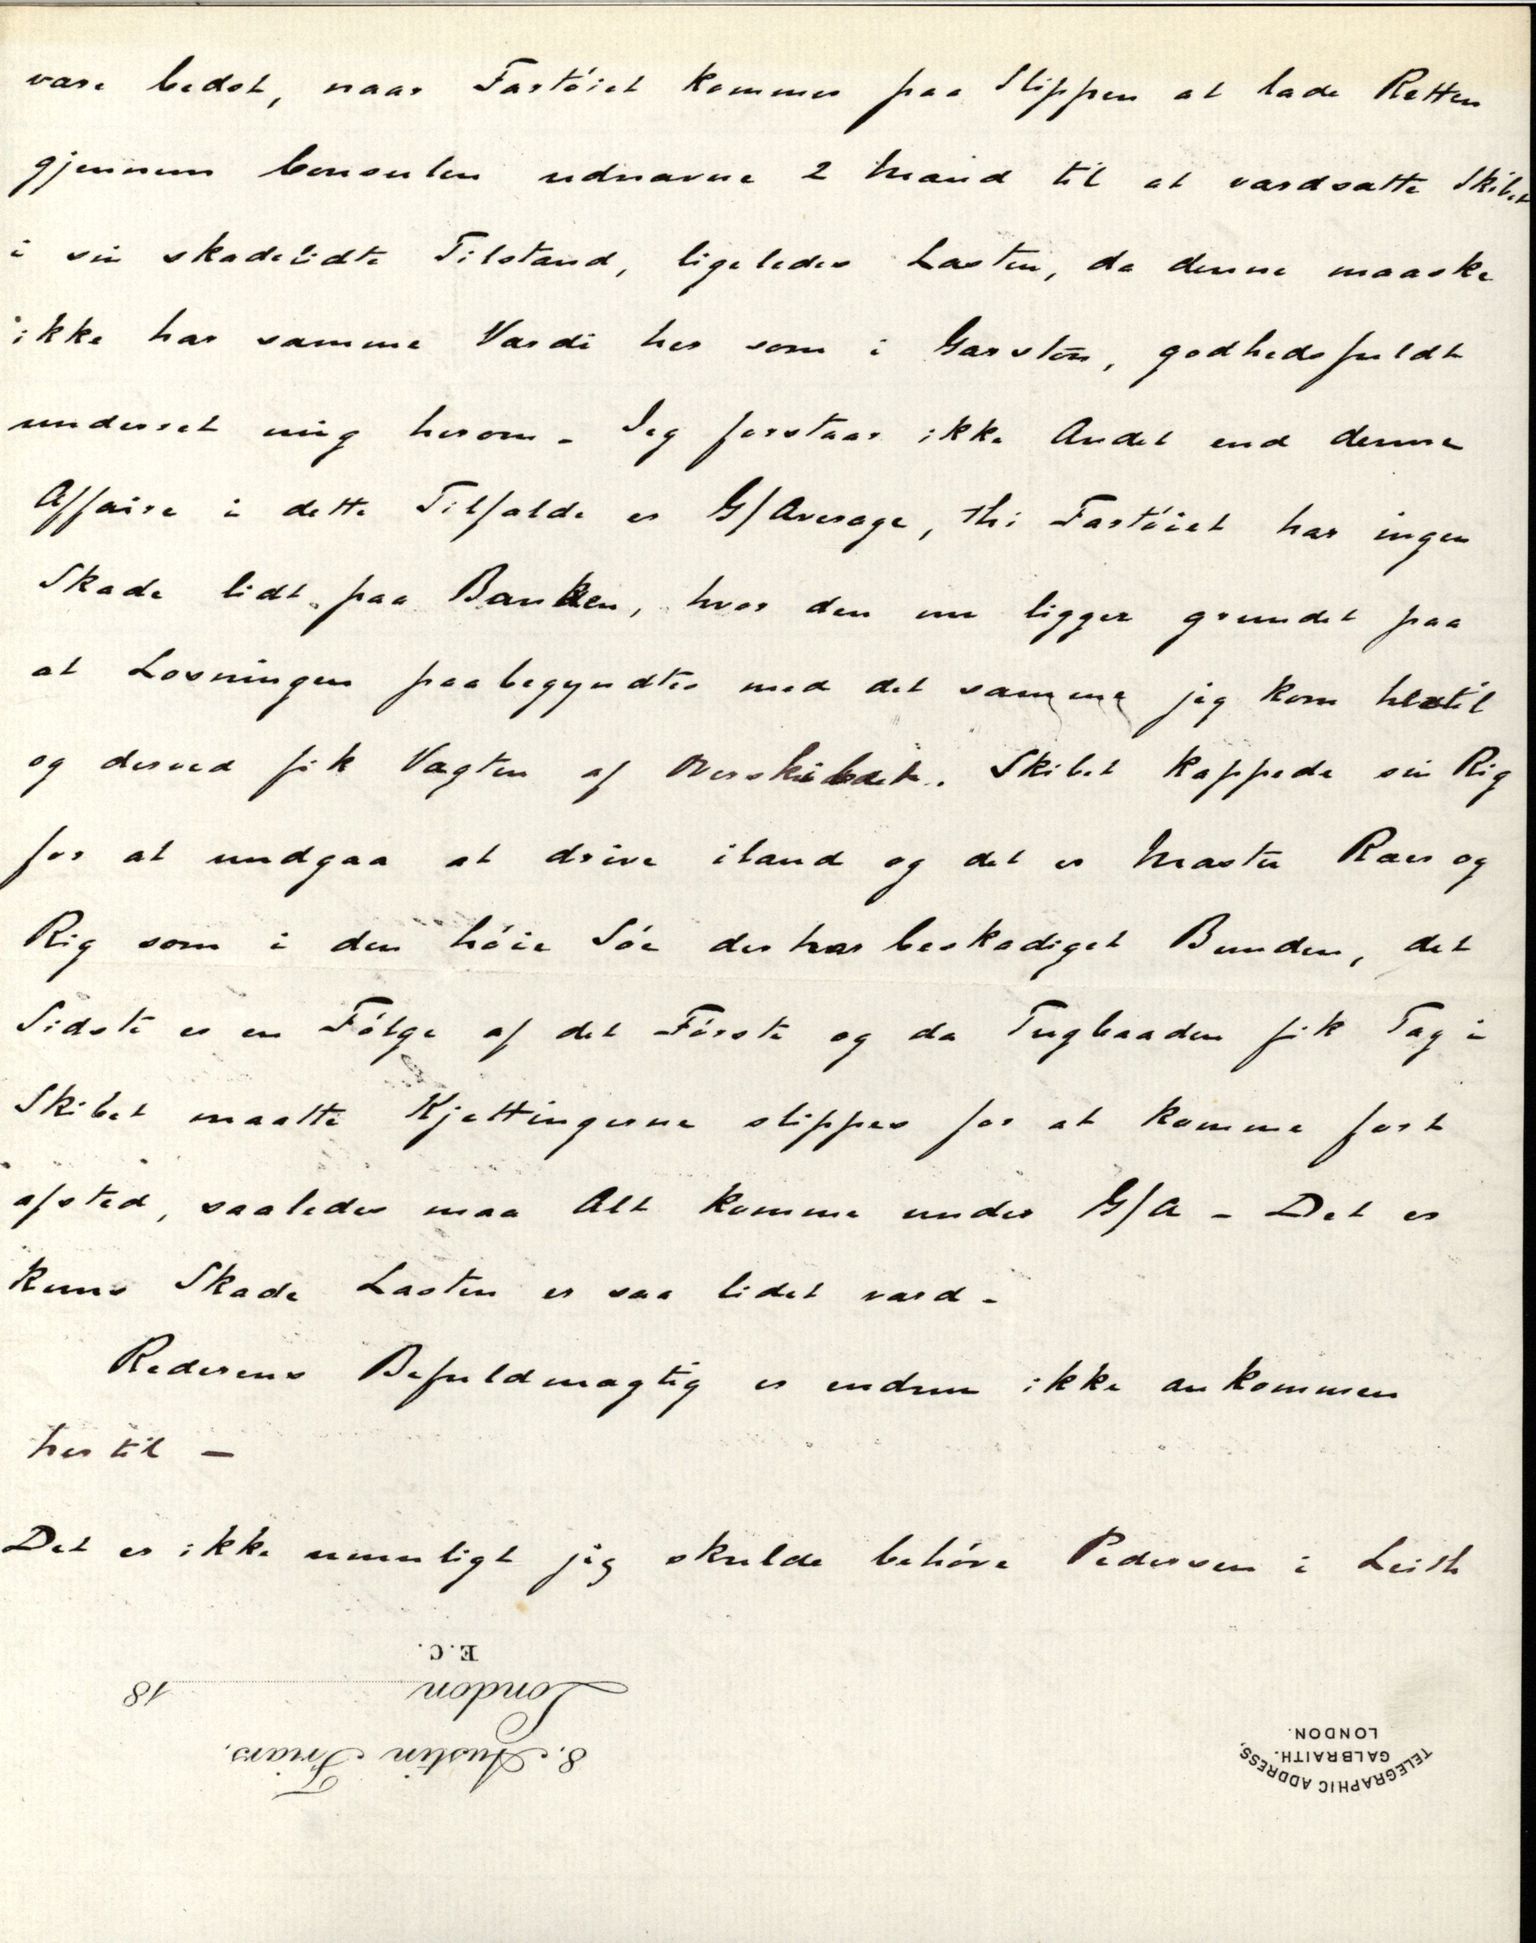 være bedst, naar Fartöiet kommer paa Slippen at lade Retten
gjennem Consulen udnævne 2 Mænd til at værdsætte Skibet
i sin skadelidte Tilstand, ligeledes Lasten, da denne maaske
ikke har samme Værdi her som i Garston, godhedsfuldt
underret mig herom - Jeg forstaar ikke Andet end denne
Affaire i dette Tilfælde er G/Average, thi Fartöiet har ingen
Skade lidt paa Banken, hvor den nu ligger grundet paa
at Losningen paabegyndtes med det samme jeg kom hertil
og derved fik Vægten af Overskibet. Skibet kappede sin Rig
for at undgaa at drive iland og det er Master Raer og
Rig som i den höie Söe der har beskadiget Bunden, det
Sidste er en Fölge af det Förste og da Tugbaaden fik Tag i
Skibet maatte Kjættingerne slippes for at komme fort
afsted, saaledes maa Alt komme under G/A - Det er
kuns Skade Lasten er saa lidet værd -
Rederens Befuldmægtig er endnu ikke ankommen
hertil -
Det er ikke umuligt jeg skulde behöve Pedersen i Leith
E.C.
London 18
8. Austin Friars.
LONDON.
GALBRAITH.
TELEGRAPHIC ADDRESS,